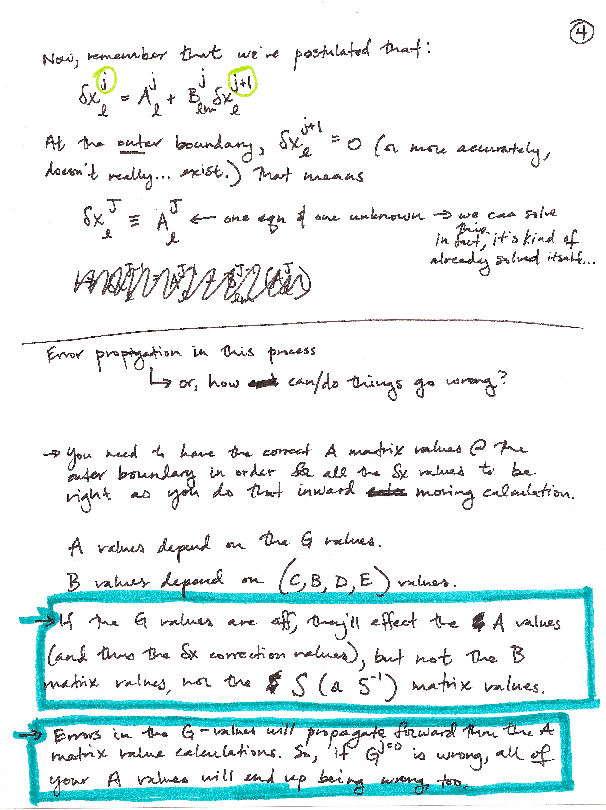 ④
Now, remember that we've postulated that:
δx_l^j = A_l^j + B_lm^j δx_l^{j+1}
At the outer boundary, δx_l^{j+1} = 0 (or more accurately,
doesn't really... exist.) That means
δx_l^J ≡ A_l^J ← one eqn & one unknown → we can solve
this
in fact, it's kind of
already solved itself...
Error propigation in this process
↳ or, how can/do things go wrong?
→ You need to have the correct A matrix values @ the
outer boundary in order for all the δx values to be
right as you do that inward moving calculation.
A values depend on the G values.
B values depend on (C, B, D, E) values.
→ If the G values are off, they'll effect the A values
(and thus the δx correction values), but not the B
matrix values, nor the S (or S⁻¹) matrix values.
→ Errors in the G-values will propagate forward thru the A
matrix value calculations. So, if G^{j=0} is wrong, all of
your A values will end up being wrong, too.